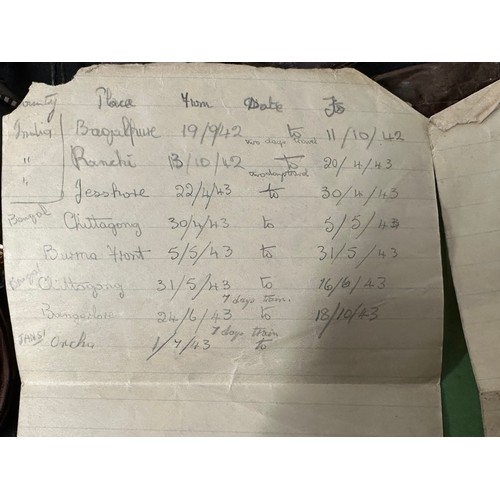 County Place From Date To
India Bagalpure 19/9/42 to 11/10/42
two days travel
" Ranchi 13/10/42 to 20/4/43
two days travel
" Jesshore 22/4/43 to 30/4/43
Bengal Chittagong 30/4/43 to 5/5/43
Burma Front 5/5/43 to 31/5/43
Bengal Chittagong 31/5/43 to 16/6/43
7 days train.
Bangalore 24/6/43 to 18/10/43
7 days train
JANSI Orcha 1/7/43 to